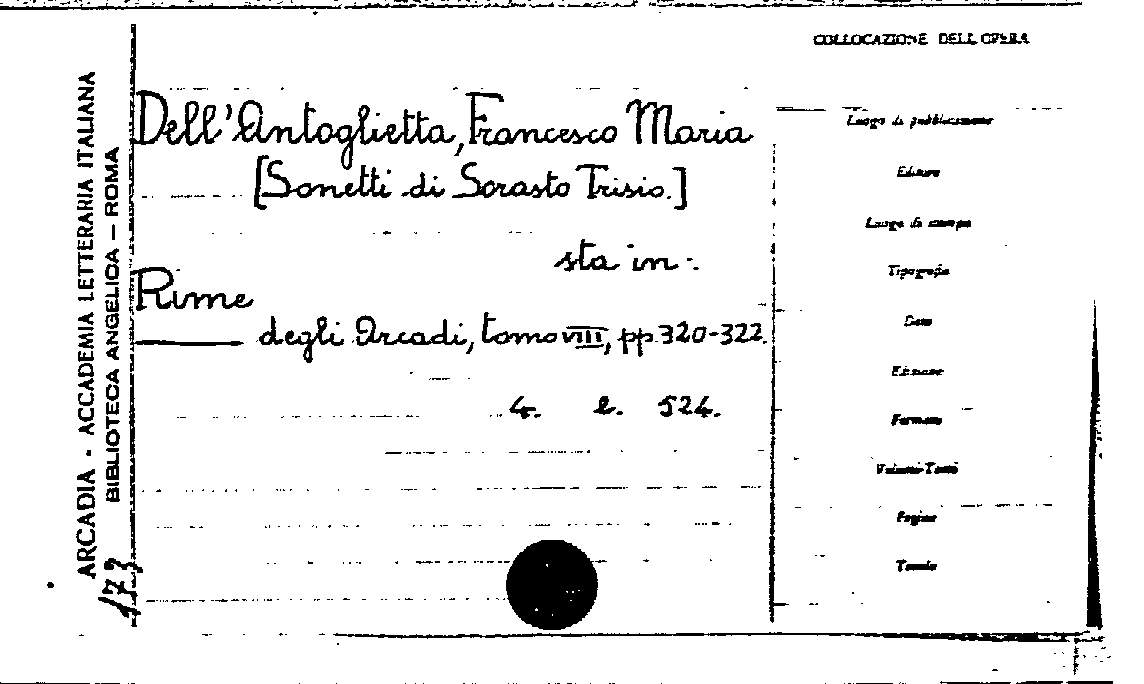 COLLOCAZIONE DELL'OPERA
ARCADIA - ACCADEMIA LETTERARIA ITALIANA
BIBLIOTECA ANGELICA — ROMA
173
Dell'Antoglietta, Francesco Maria
[Sonetti di Sorasto Trisio.]
sta in:
Rime
degli Arcadi, tomo VIII, pp. 320-322.
4. l. 524.
Luogo di pubblicazione
Editore
Luogo di stampa
Tipografia
Data
Edizione
Formato
Volumi-Tomi
Pagine
Tavole